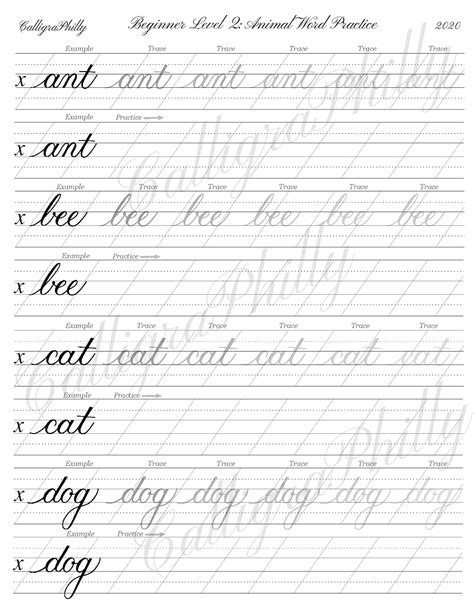 CalligraPhilly Beginner Level 2: Animal Word Practice 2020
Example Trace Trace Trace Trace Trace
x ant ant ant ant ant ant
Example Practice
x ant
Example Trace Trace Trace Trace Trace
x bee bee bee bee bee bee
Example Practice
x bee
Example Trace Trace Trace Trace Trace
x cat cat cat cat cat cat
Example Practice
x cat
Example Trace Trace Trace Trace Trace
x dog dog dog dog dog dog
Example Practice
x dog
CalligraPhilly
CalligraPhilly
CalligraPhilly
CalligraPhilly